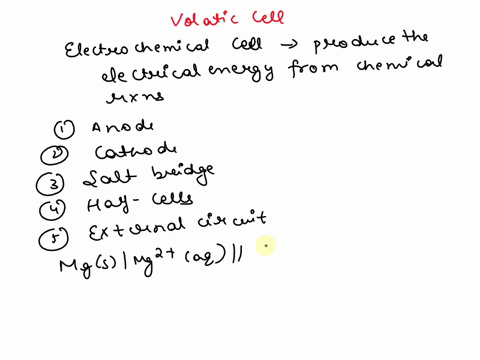 Volatic Cell
Electrochemical Cell → produce the
electrical energy from chemical
rxns
① Anode
② Cathode
③ Salt bridge
④ Half-cells
⑤ External circuit
Mg(s) | Mg²⁺ (aq) ||